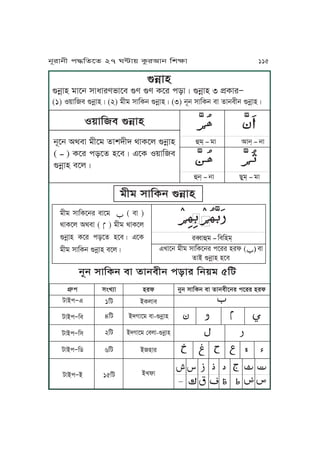 নূরানী পদ্ধতিতে ২৭ ঘন্টায় কুরআন শিক্ষা ১১৫
গুন্নাহ
গুন্নাহ মানে সাধারণভাবে গুণ গুণ করে পড়া। গুন্নাহ ৩ প্রকার–
(১) ওয়াজিব গুন্নাহ। (২) মীম সাকিন গুন্নাহ। (৩) নূন সাকিন বা তানবীন গুন্নাহ।
ওয়াজিব গুন্নাহ
নূনে অথবা মীমে তাশদীদ থাকলে গুন্নাহ
( ّ ) করে পড়তে হবে। একে ওয়াজিব
গুন্নাহ বলে।
هُمَّ أَنَّ
হুম্ – মা আন্ – না
هُنَّ ثُمَّ
হুন্ – না ছুম্ – মা
মীম সাকিন গুন্নাহ
মীম সাকিনের বামে ب ( বা )
থাকলে অথবা ( م ) মীম থাকলে
গুন্নাহ করে পড়তে হবে। একে
মীম সাকিন গুন্নাহ বলে।
رَبَّهُمْ بِهِمْ
রব্বাহুম – বিহিম্
এখানে মীম সাকিনের পরের হরফ (ب) বা
তাই গুন্নাহ হবে
নূন সাকিন বা তানবীন পড়ার নিয়ম ৫টি
গ্রুপ সংখ্যা হরফ নুন সাকিন বা তানবীনের পরের হরফ
টাইপ–এ ১টি ইকলাব ب
টাইপ–বি ৪টি ইদগামে বা-গুন্নাহ ن و م ي
টাইপ–সি ২টি ইদগামে বেলা-গুন্নাহ ل ر
টাইপ–ডি ৬টি ইজহার خ غ ح ع ه ء
টাইপ–ই ১৫টি ইখফা ش س ز ذ د ج ث ت
– ك ق ف ظ ط ض ص